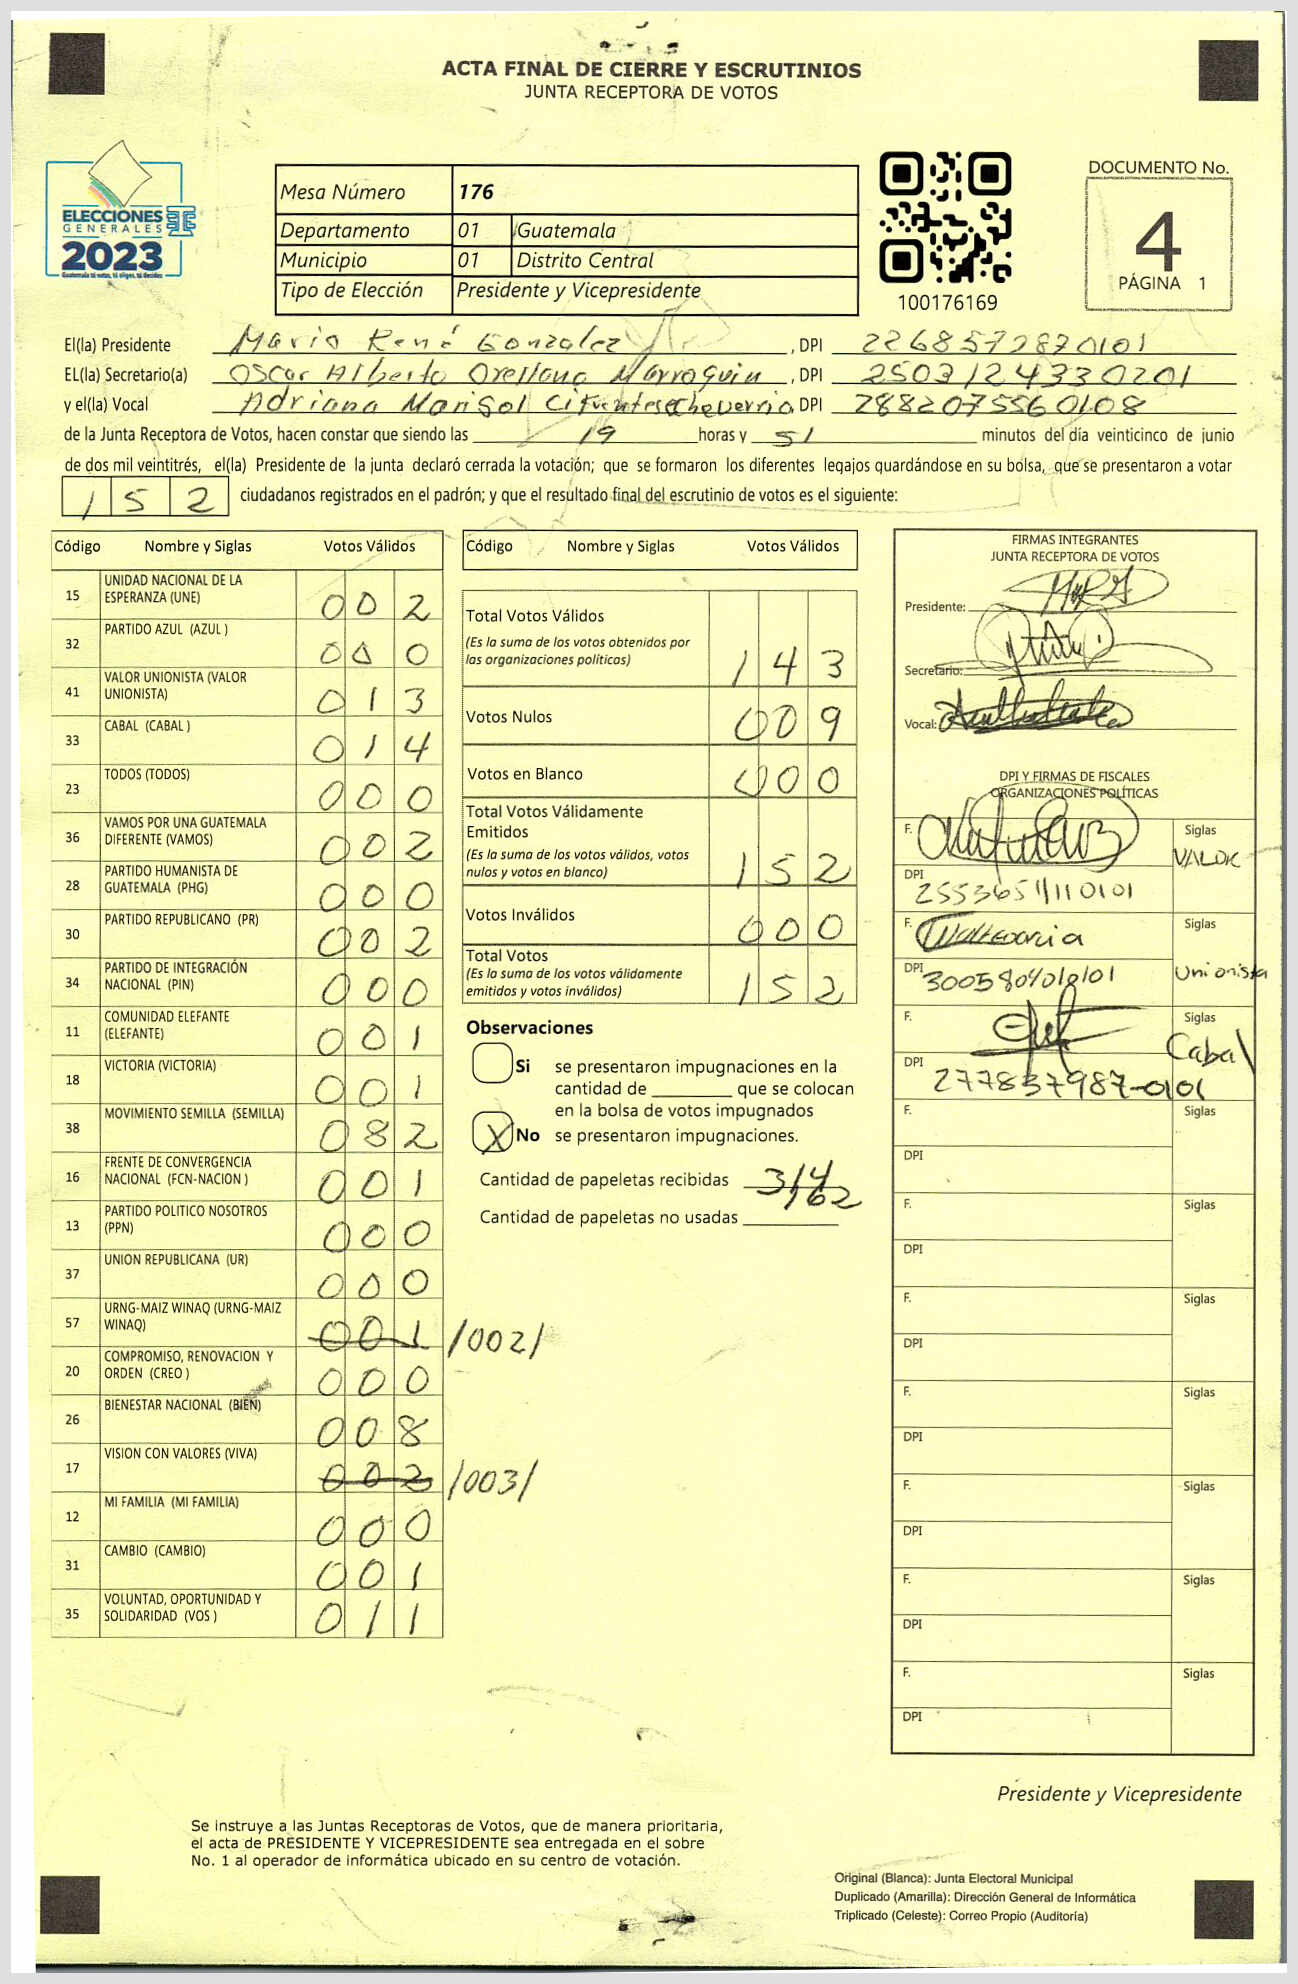 ACTA FINAL DE CIERRE Y ESCRUTINIOS
JUNTA RECEPTORA DE VOTOS
ELECCIONES
GENERALES
2023
Guatemala tú votas, tú eliges, tú decides
Mesa Número 176
Departamento 01 Guatemala
Municipio 01 Distrito Central
Tipo de Elección Presidente y Vicepresidente
100176169
DOCUMENTO No.
4
PÁGINA 1
El(la) Presidente Mario René Gonzalez, DPI 2268572870101
EL(la) Secretario(a) Oscar Alberto Orellana Marroquin, DPI 2503124330201
y el(la) Vocal Adriana Marisol Cifuentes Echeverria, DPI 2882075560108
de la Junta Receptora de Votos, hacen constar que siendo las 19 horas y 51 minutos del día veinticinco de junio
de dos mil veintitrés, el(la) Presidente de la junta declaró cerrada la votación; que se formaron los diferentes legajos quardándose en su bolsa, que se presentaron a votar
152 ciudadanos registrados en el padrón; y que el resultado final del escrutinio de votos es el siguiente:
Código Nombre y Siglas Votos Válidos
15 UNIDAD NACIONAL DE LA ESPERANZA (UNE) 002
32 PARTIDO AZUL (AZUL ) 000
41 VALOR UNIONISTA (VALOR UNIONISTA) 013
33 CABAL (CABAL ) 014
23 TODOS (TODOS) 000
36 VAMOS POR UNA GUATEMALA DIFERENTE (VAMOS) 002
28 PARTIDO HUMANISTA DE GUATEMALA (PHG) 000
30 PARTIDO REPUBLICANO (PR) 002
34 PARTIDO DE INTEGRACIÓN NACIONAL (PIN) 000
11 COMUNIDAD ELEFANTE (ELEFANTE) 001
18 VICTORIA (VICTORIA) 001
38 MOVIMIENTO SEMILLA (SEMILLA) 082
16 FRENTE DE CONVERGENCIA NACIONAL (FCN-NACION ) 001
13 PARTIDO POLITICO NOSOTROS (PPN) 000
37 UNION REPUBLICANA (UR) 000
57 URNG-MAIZ WINAQ (URNG-MAIZ WINAQ) 001 /002/
20 COMPROMISO, RENOVACION Y ORDEN (CREO ) 000
26 BIENESTAR NACIONAL (BIEN) 008
17 VISION CON VALORES (VIVA) 002 /003/
12 MI FAMILIA (MI FAMILIA) 000
31 CAMBIO (CAMBIO) 001
35 VOLUNTAD, OPORTUNIDAD Y SOLIDARIDAD (VOS ) 011
Código Nombre y Siglas Votos Válidos
Total Votos Válidos
(Es la suma de los votos obtenidos por
las organizaciones políticas) 143
Votos Nulos 009
Votos en Blanco 000
Total Votos Válidamente
Emitidos
(Es la suma de los votos válidos, votos
nulos y votos en blanco) 152
Votos Inválidos 000
Total Votos
(Es la suma de los votos válidamente
emitidos y votos inválidos) 152
Observaciones
Si se presentaron impugnaciones en la
cantidad de ________ que se colocan
en la bolsa de votos impugnados
X No se presentaron impugnaciones.
Cantidad de papeletas recibidas 314
162
Cantidad de papeletas no usadas
FIRMAS INTEGRANTES
JUNTA RECEPTORA DE VOTOS
Presidente:
Secretario:
Vocal:
DPI Y FIRMAS DE FISCALES
ORGANIZACIONES POLÍTICAS
F. Siglas VALOR
DPI
F. Siglas Unionista
DPI
F. Siglas Cabal
DPI 277837987-0101
F. Siglas
DPI
F. Siglas
DPI
F. Siglas
DPI
F. Siglas
DPI
F. Siglas
DPI
F. Siglas
DPI
F. Siglas
DPI
Presidente y Vicepresidente
Se instruye a las Juntas Receptoras de Votos, que de manera prioritaria,
el acta de PRESIDENTE Y VICEPRESIDENTE sea entregada en el sobre
No. 1 al operador de informática ubicado en su centro de votación.
Original (Blanca): Junta Electoral Municipal
Duplicado (Amarilla): Dirección General de Informática
Triplicado (Celeste): Correo Propio (Auditoría)